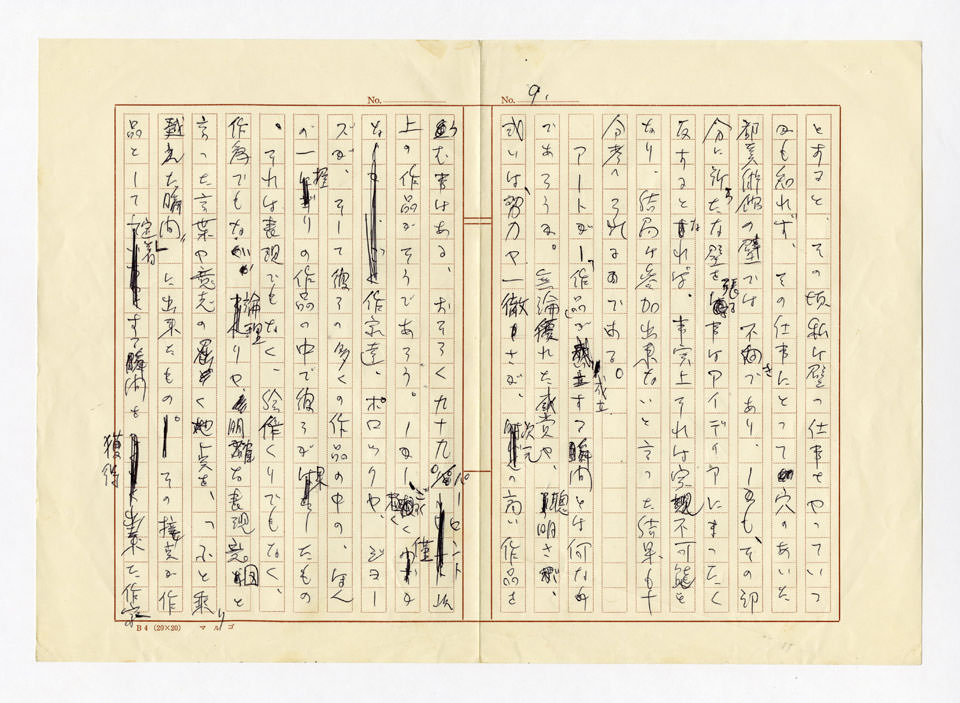 No.
No. 9.
とすると、その頃私は壁の仕事をやっていつ
かも知れず、その仕事にとって穴のあいた
都美術館の壁では不向きであり、しかも、その部
分に新たな壁を張る事はアイディアにまったく
反するとなれば、事実上それは実現不可能と
なり、結局は参加出来ないと言った結果も十
分考へられるのである。
アートが「作品が成立する瞬間」とは何なの
であろうか。無論優れた感覚や、聡明さが、
或いは、努力や一徹さが、次元の高い作品を
む事はある、おそらく九十九パーセント以
上の作品がそうであろう。しかし極く僅か
な作家達、ポロックや、ジョー
ンズが、そして彼らの多くの作品の中の、ほん
の一握りの作品の中で彼らが果したもの
、それは表現でもなく、絵作りでもなく、
作為でもない論理や、明確な表現意図と
言った言葉や意志の届く地点を、ふと乗り
越えた瞬間〟に出来たもの。その接点が作
品として定着する瞬間を獲得出来た作家の
B4 (20×20) マルゴ